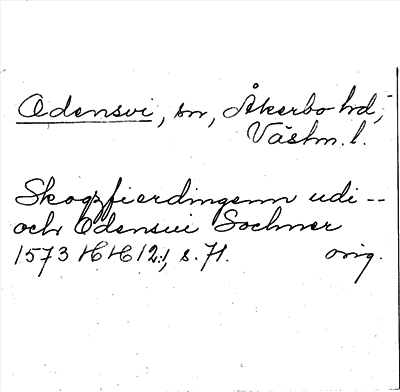 Odensvi, sn, Åkerbo hd,
Västm. l.
Skogzfierdingenn udi --
och Odensui Sochner
1573 HH 12:, s. 71. orig.